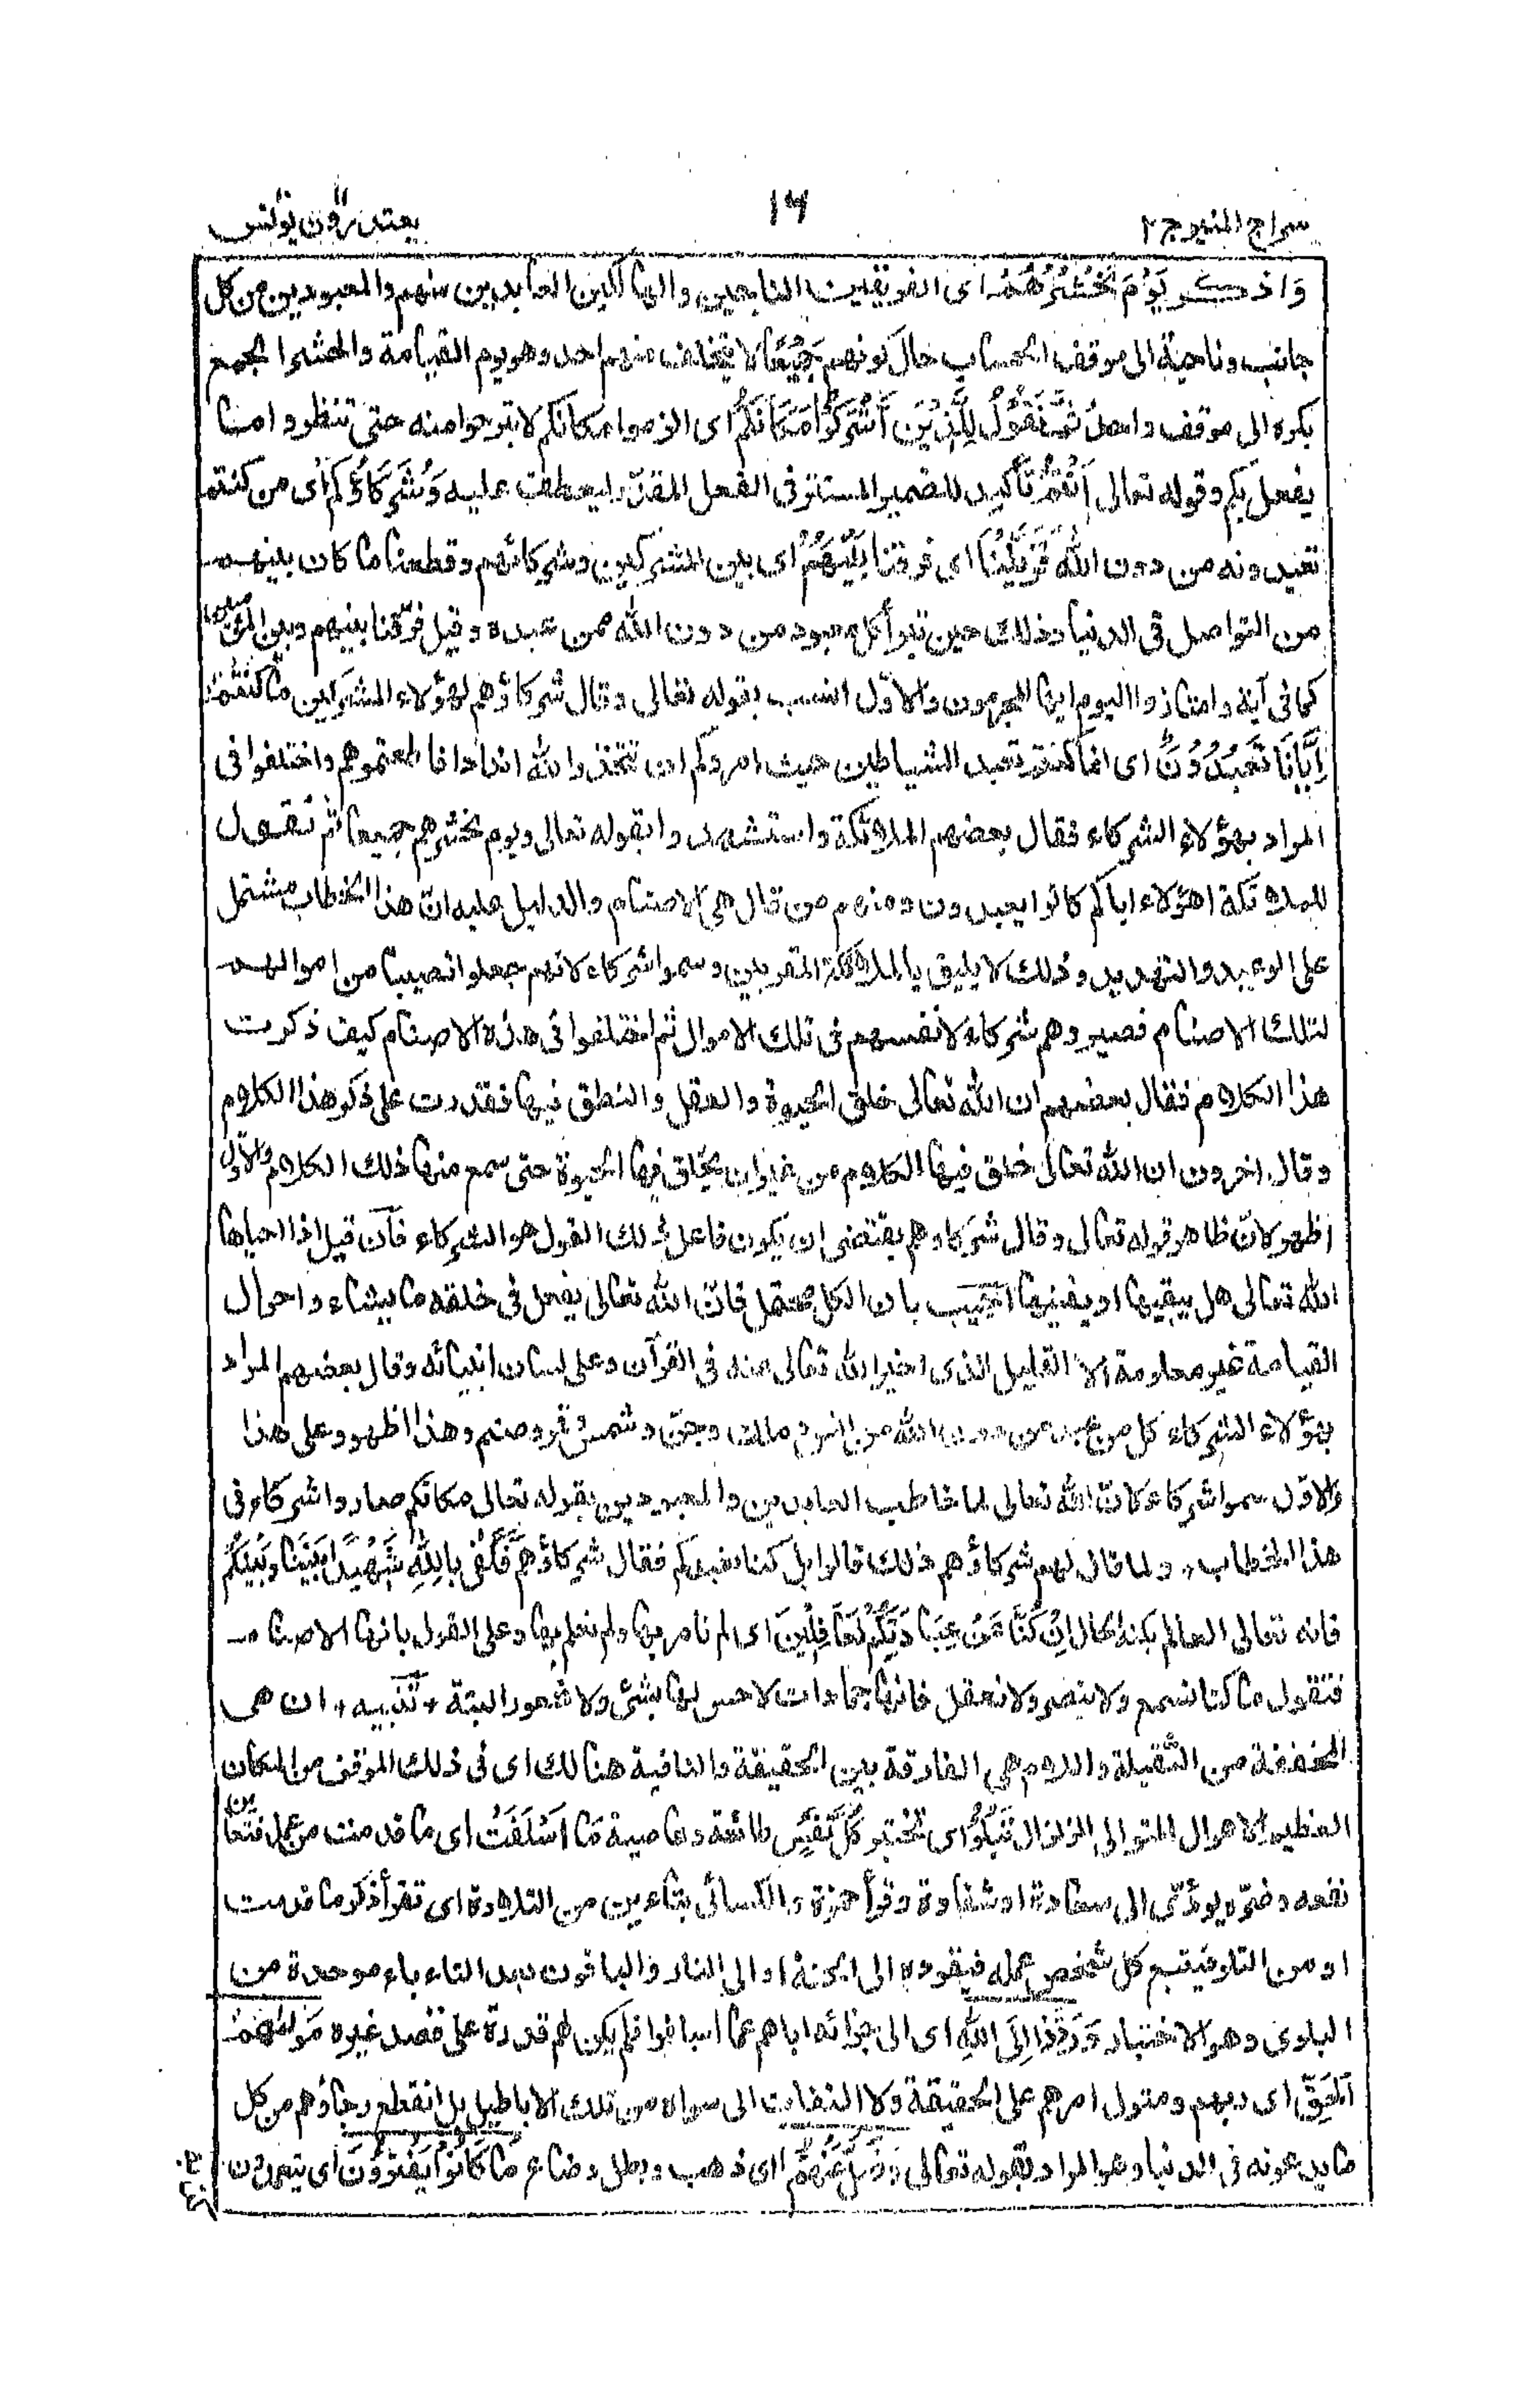 سراج المنير ج ٢
١٦
يعتذرون يونس
وَاذكر يَوْمَ نَحْشُرُهُمْ اى الفريقين الناجين والهالكين العابدين منهم والمعبودين من كل
جانب وناحية الى موقف الحساب حال كونهم جَمِيْعًا لا يتخلف منهم احد وهو يوم القيامة والحشر الجمع
بكره الى موقف واحد ثُمَّ نَقُوْلُ لِلَّذِيْنَ أَشْرَكُوْا مَكَانَكُمْ اى الزموا مكانكم لا تبرحوا منه حتى تنظروا ما
يفعل بكم وقوله تعالى أَنْتُمْ تأكيد للضمير المستتر فى الفعل المقدر ليعطف عليه وَشُرَكَاؤُكُمْ اى من كنتم
تعبدونه من دون الله فَزَيَّلْنَا اى فرقنا بَيْنَهُمْ اى بين المشركين وشركائهم وقطعنا ما كان بينهم
من التواصل فى الدنيا وذلك حين تبرأ كل معبود من دون الله ممن عبده وقيل فرقنا بينهم وبين المؤمنين
كما فى آية وامتازوا اليوم ايها المجرمون والاوّل انسب بقوله تعالى وقال شركاؤهم لهؤلاء المشركين مَا كُنْتُمْ
اِيَّانَا تَعْبُدُوْنَ اى انما كنتم تعبد الشياطين حيث امروكم ان تتخذوا لله اندادا فاطعتموهم واختلفوا فى
المراد بهؤلاء الشركاء فقال بعضهم الملائكة واستشهدوا بقوله تعالى ويوم نحشرهم جميعا ثم نقول
للملائكة اهؤلاء اياكم كانوا يعبدون ومنهم من قال هى الاصنام والدليل عليه انّ هذا الخطاب مشتمل
على الوعيد والتهديد وذلك لا يليق بالملائكة المقربين وسموا شركاء لانهم جعلوا نصيبا من اموالهم
لتلك الاصنام فصيروهم شركاء لانفسهم فى تلك الاموال ثم اختلفوا فى هذه الاصنام كيف ذكرت
هذا الكلام فقال بعضهم ان الله تعالى خلق الحيوة والعقل والنطق فيها فقدرت على ذكر هذا الكلام
وقال اخرون ان الله تعالى خلق فيها الكلام من غير ان يخلق فيها الحيوة حتى سمع منها ذلك الكلام والاول
اظهر لانّ ظاهر قوله تعالى وقال شركاوهم يقتضى ان يكون فاعل ذلك القول هو الشركاء فآن قيل اذا احياها
الله تعالى هل يبقيها او يفنيها اجيب بان الكل محتمل فانّ الله تعالى يفعل فى خلقه ما يشاء واحوال
القيامة غير معلومة الا القليل الذى اخبر الله تعالى عنه فى القرآن وعلى لسان انبيائه وقال بعضهم المراد
بهؤلاء الشركاء كل من عبد من دون الله من انس وملك وجنّ وشمس وقمر وصنم وهذا اظهر وعلى هذا
والاوّل سموا شركاء لانّ الله تعالى لما خاطب العابدين والمعبودين بقوله تعالى مكانكم صاروا شركاء فى
هذا الخطاب ولما قال لهم شركاؤهم ذلك قالوا بل كنا نعبدكم فقال شركاؤهم فَكَفٰى بِاللّٰهِ شَهِيْدًا بَيْنَنَا وَبَيْنَكُمْ
فانه تعالى العالم بكنه الحال اِنْ كُنَّا عَنْ عِبَادَتِكُمْ لَغَافِلِيْنَ اى لم نامر بها ولم نعلم بها وعلى القول بانها الاصنام
فتقول ما كنا نسمع ولا نبصر ولا نعقل فانها جمادات لا حس لها بشئ ولا شعور البتة تنبيه ان هى
المخففة من الثقيلة واللام هى الفارقة بين الحقيقة والنافية هنالك اى فى ذلك الموقف من المكان
العظيم الاهوال المتوالى الزلزال تَبْلُوْ اى تختبر كُلُّ نَفْسٍ طائعة وعاصية مَا اَسْلَفَتْ اى ما قدمت من عمل فتعاين
نفعه وضره يودّى الى سعادة او شقاوة وقرأ حمزة والكسائى بتاءين من التلاوة اى تقرأ ذكر ما قدمت
او من التلو فيتبع كل شخص عمله فيقوده الى الجنة او الى النار والباقون بعد التاء باء موحدة من
البلوى وهو الاختبار وَرُدُّوْا اِلَى اللّٰهِ اى الى جزائه اياهم عما اسلفوا فلم يكن لهم قدرة على قصد غيره مَوْلٰىهُمُ
الْحَقِّ اى ربهم ومتول امرهم على الحقيقة ولا التفات الى سواه من تلك الاباطيل بل انقطع رجاؤهم من كل
ما يدعونه فى الدنيا وهو المراد بقوله تعالى وَضَلَّ عَنْهُمْ اى ذهب وبطل وضاع مَا كَانُوْا يَفْتَرُوْنَ اى يتعمدون